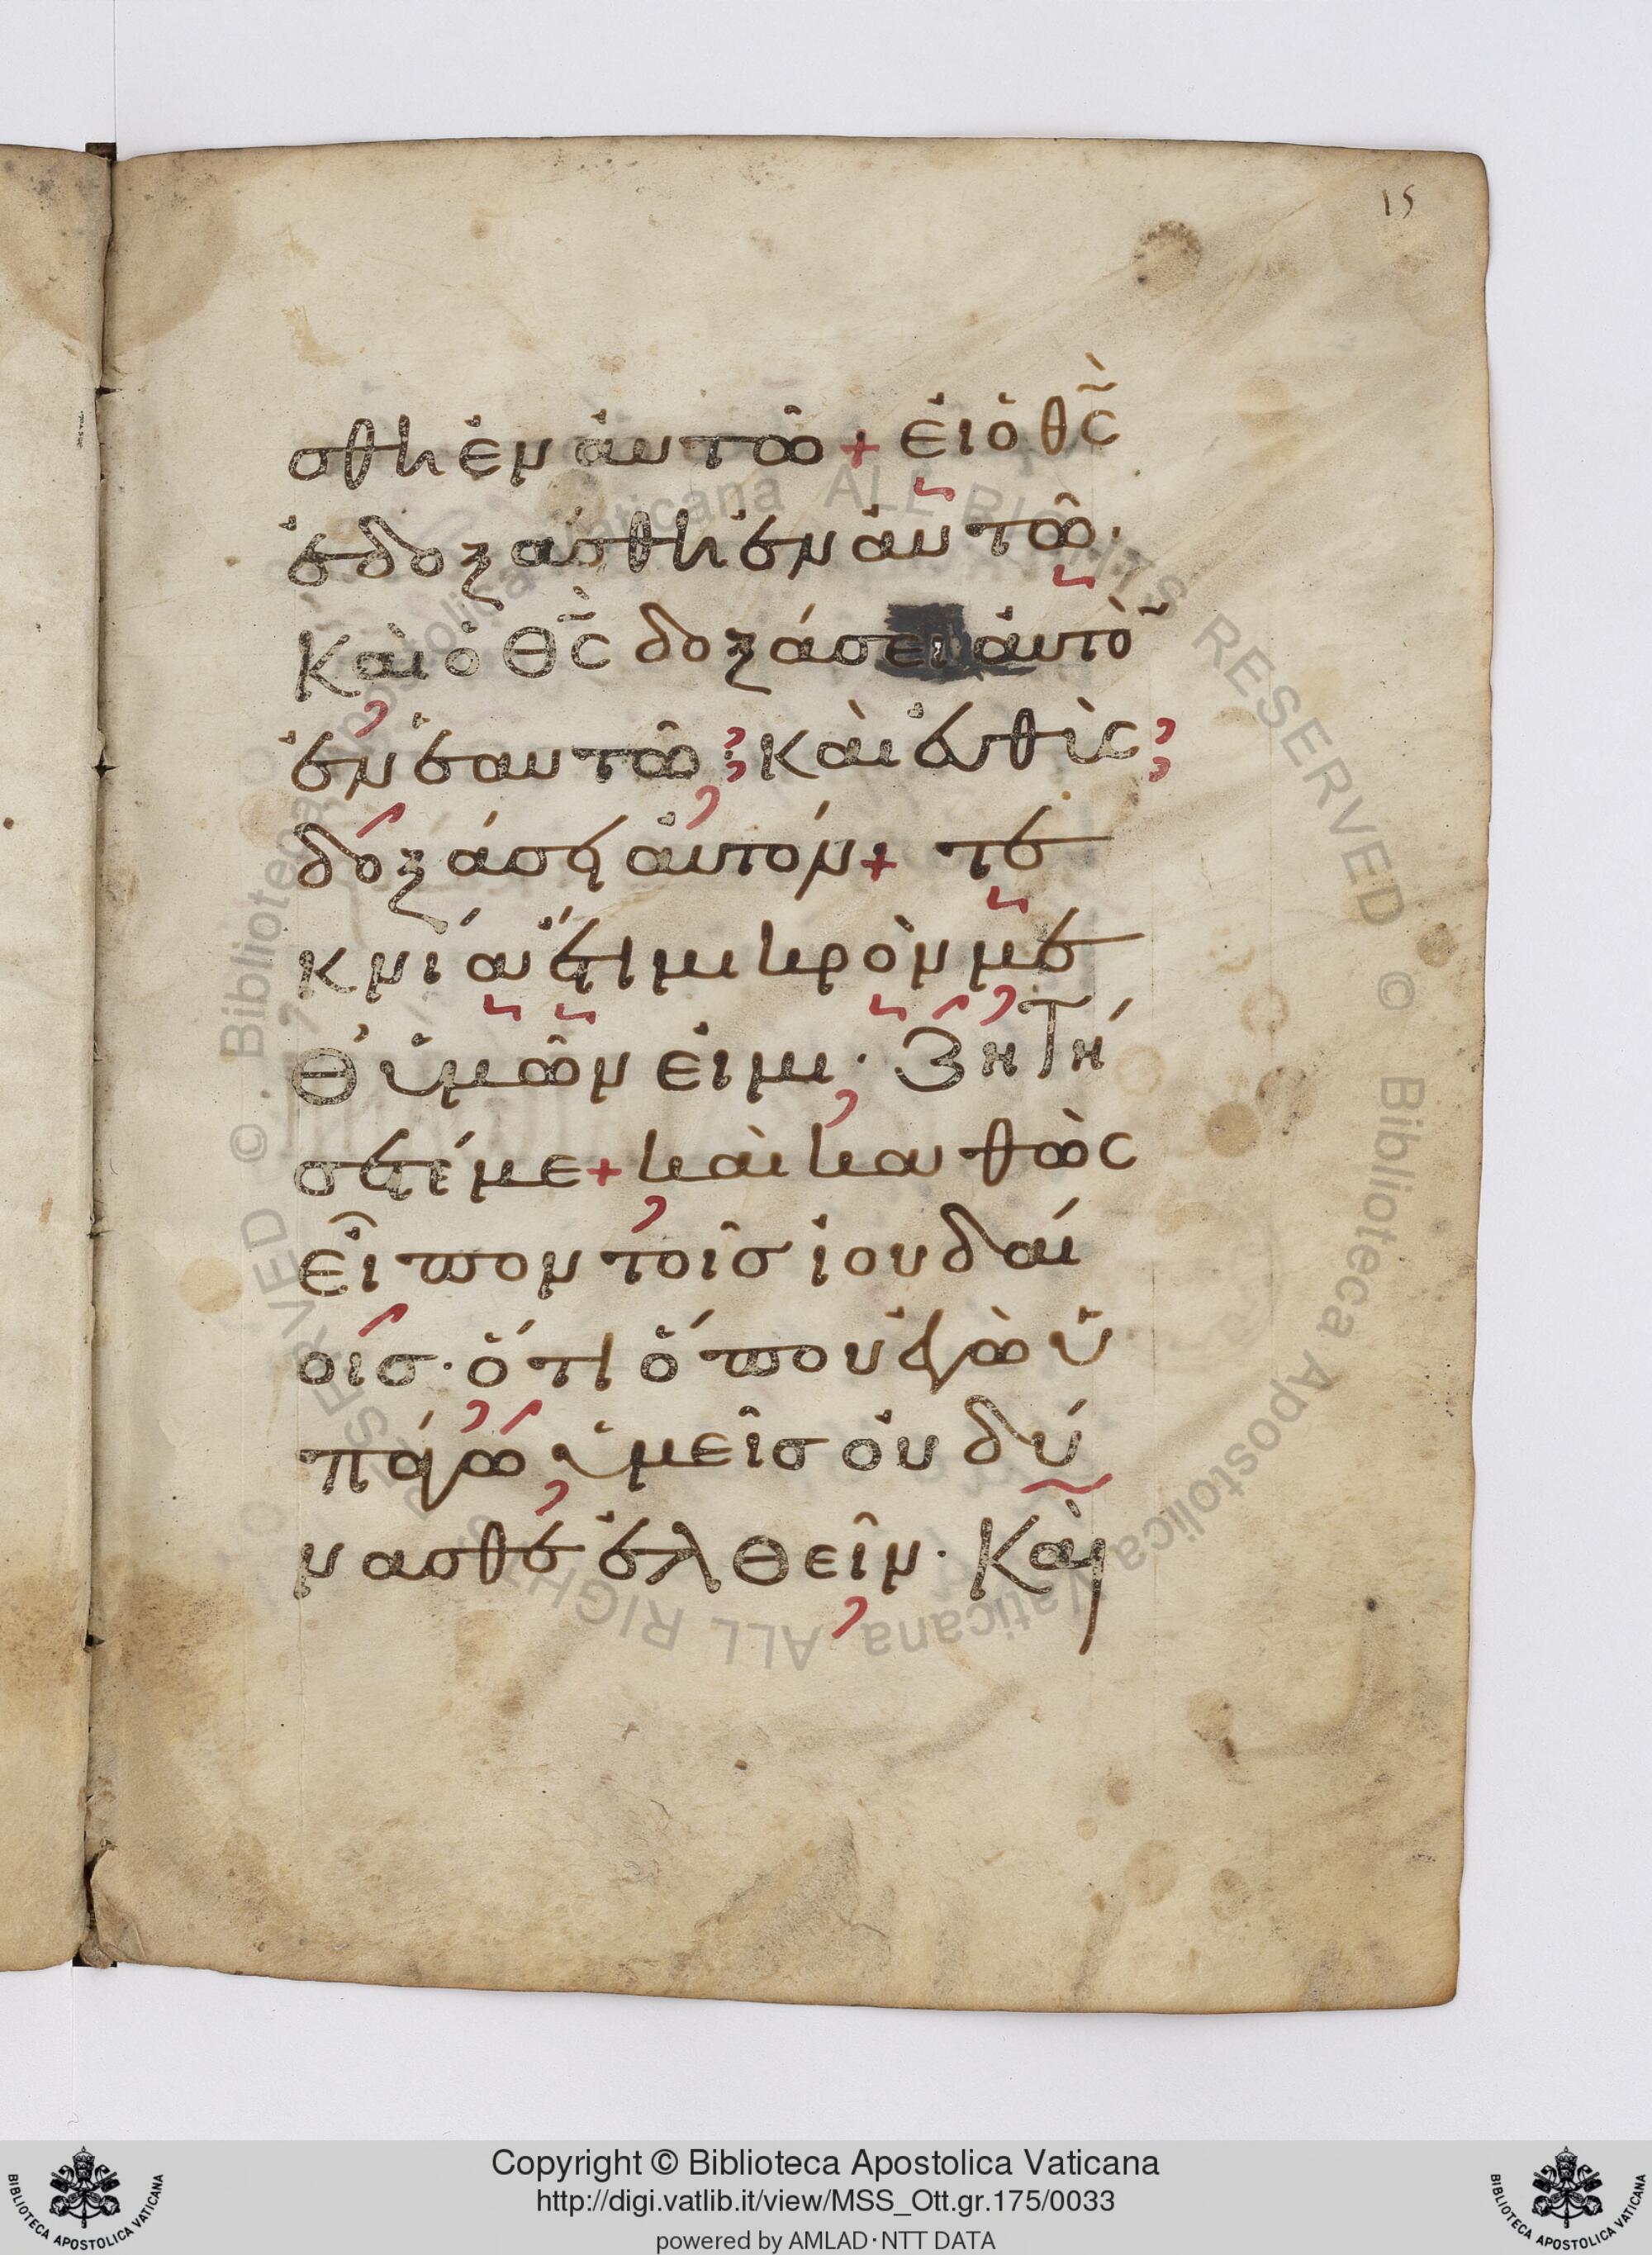 15
σθη ἐν ἀυτῶ + ἐι ὁ θ̃ς
ἐδοξάσθη ἐν ἀυτῶ·
Καὶ ὁ Θ̃ς δοξάσει ἀυτὸ̃
ἐν ἑαυτῶ; καὶ ἐυθὶς;
δοξάσει ἀυτόν + τε
κνία ἔτι μικρὸν με
Θ' ὑμῶν ἐιμι· Ζητή
σετέ με + καὶ καθὼς
εἶπον τοῖσ ἰουδαί
οισ· ὅτι ὅπου ἐγὼ ὑ
πάγω ὑμεῖσ ὀυ δύ
νασθε ἐλθεῖν· Καὶ
Copyright © Biblioteca Apostolica Vaticana
http://digi.vatlib.it/view/MSS_Ott.gr.175/0033
powered by AMLAD·NTT DATA
BIBLIOTECA APOSTOLICA VATICANA
BIBLIOTECA APOSTOLICA VATICANA
© Biblioteca Apostolica Vaticana ALL RIGHTS RESERVED
© Biblioteca Apostolica Vaticana ALL RIGHTS RESERVED